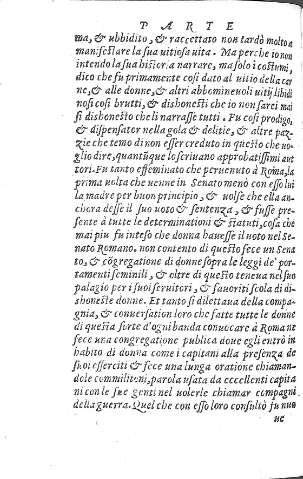 PARTE
ma, & ubbidito, & raccettato non tardò molto a
manifestare la sua uitiosa uita. Ma perche io non
intendo la sua historia narrare, ma solo i costumi,
dico che fu primamente cosi dato al uitio della car
ne, & alle donne, & altri abbomineuoli uitij libidi
nosi cosi brutti, & dishonesti che io non sarei mai
si dishonesto che li narrasse tutti. Fu cosi prodigo,
& dispensator nella gola & delitie, & altre paz-
zie che temo di non esser creduto in questo che uo-
glio dire, quantũque lo scriuano approbatissimi aut
tori. Fu tanto effeminato che peruenuto à Roma, la
prima uolta che uenne in Senato menò con esso lui
la madre per buon principio, & uolse che ella an-
chora desse il suo uoto & sentenza, & fusse pre-
sente à tutte le determinationi & statuti, cosa che
mai piu fu inteso che donna hauesse il uoto nel Se-
nato Romano. non contento di questo fece un Sena
to, & cõgregatione di donne sopra le leggi de' por-
tamenti feminili, & oltre di questo teneua nel suo
palagio per i suoi seruitori, & fauoriti scola di di-
shoneste donne. Et tanto si dilettaua della compa-
gnia, & conuersation loro che fatte tutte le donne
di questa sorte d'ogni banda conuocare à Roma ne
fece una congregatione publica doue egli entrò in
habito di donna come i capitani alla presenza de
suoi esserciti & fece una lunga oratione chiaman-
dole commilitoni, parola usata da eccellenti capita
ni con le sue genti nel uolerle chiamar compagni
della guerra. Quel che con esso loro consultò fu nuo
ue